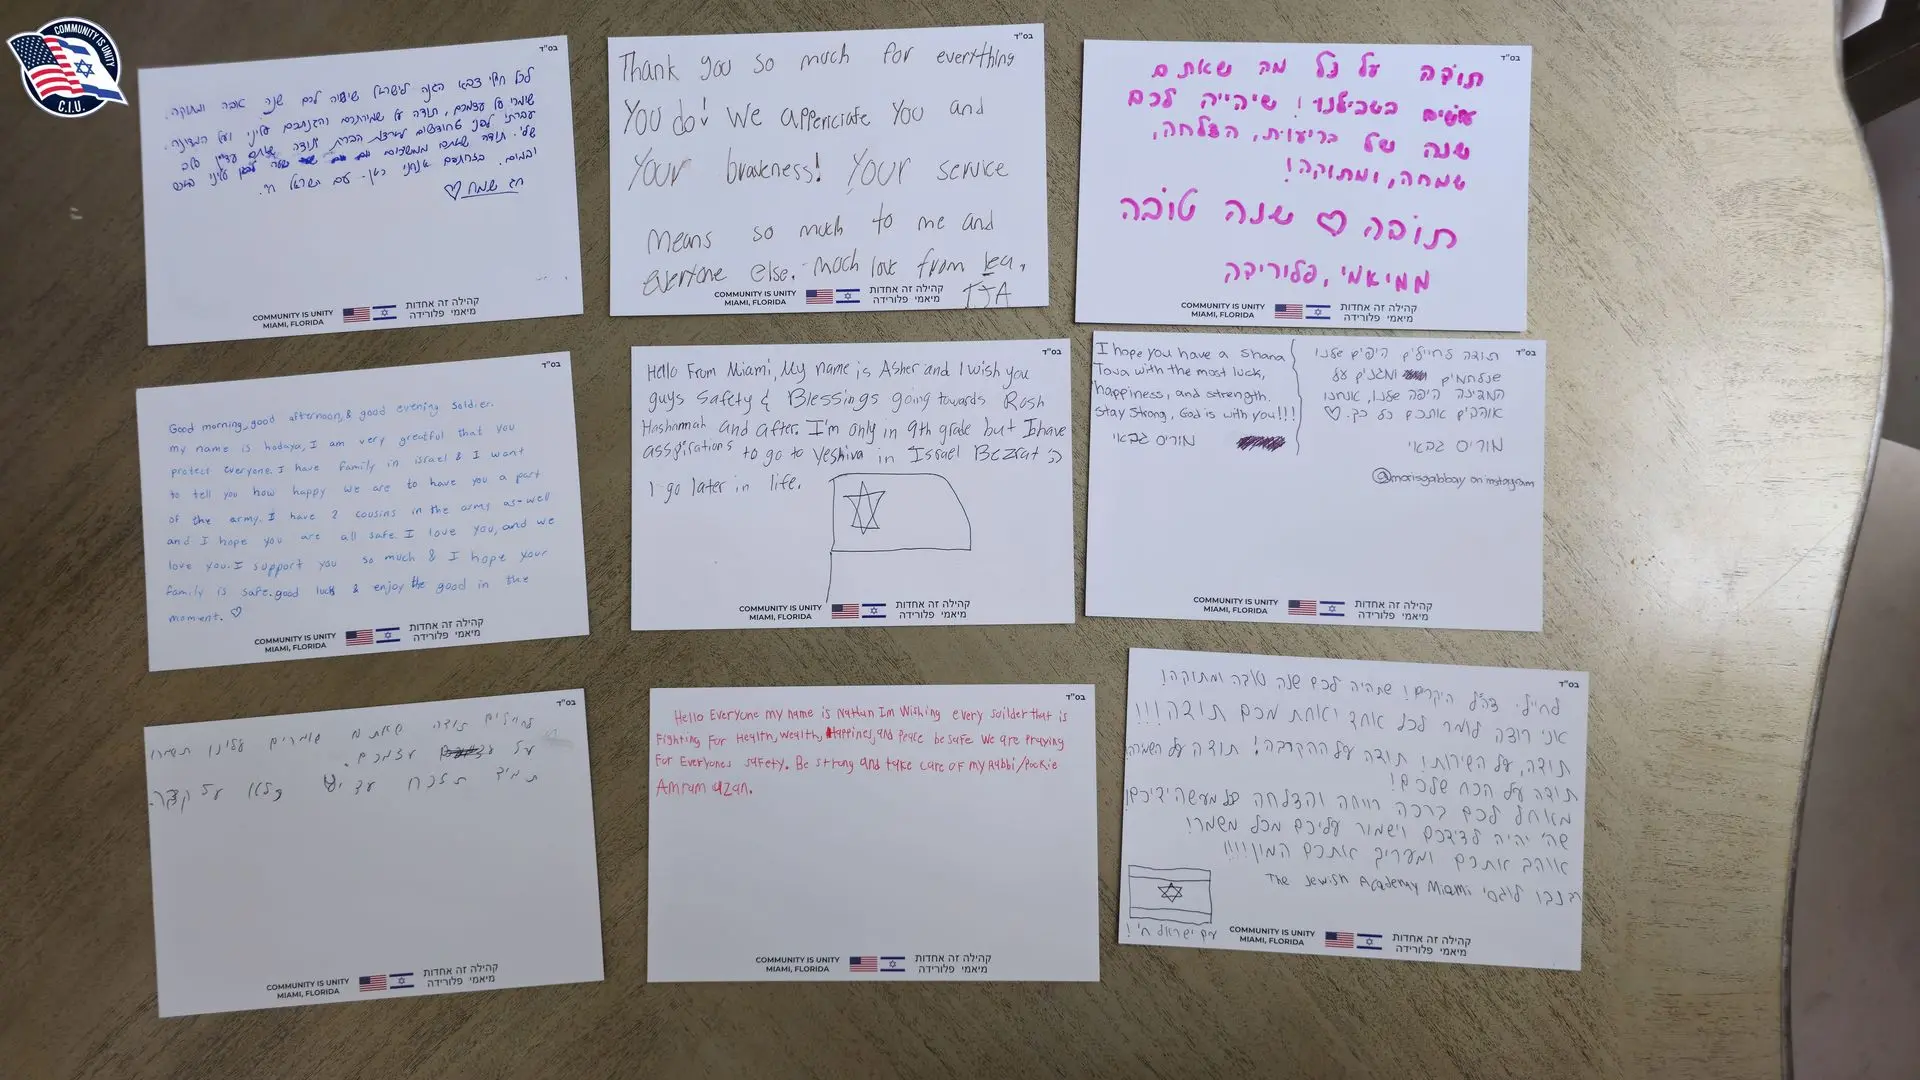 COMMUNITY IS UNITY
C.I.U.
בס"ד
לכל חיילי צבא הגנה לישראל שיהיה לכם שנה טובה ומתוקה.
שמרו על עצמכם, תודה על שמירתכם והגנתכם עלינו ועל המדינה.
עברתי לפני חודשים לארצות הברית תודה שאתם עדיין
שלי. תודה שאתם ממשיכים עלינו
אנחנו כאן. עם ישראל חי.
חג שמח ♡
COMMUNITY IS UNITY
MIAMI, FLORIDA
קהילה זה אחדות
מיאמי פלורידה
בס"ד
Thank you so much for everything
You do! We appericiate You and
Your braveness! Your service
means so much to me and
everyone else. much love from lea,
TJA
COMMUNITY IS UNITY
MIAMI, FLORIDA
קהילה זה אחדות
מיאמי פלורידה
בס"ד
תודה על כל מה שאתם
עושים בשבילנו! שיהייה לכם
שנה של בריעות, הצלחה,
שמחה, ומתוקה!
תובה ♡ שנה טובה
ממיאמי, פלורידה
COMMUNITY IS UNITY
MIAMI, FLORIDA
קהילה זה אחדות
מיאמי פלורידה
בס"ד
Good morning, good afternoon, & good evening soldier.
my name is hodaya, I am very greatful that you
protect everyone. I have family in israel & I want
to tell you how happy we are to have you a part
of the army. I have 2 cousins in the army as-well
and I hope you are all safe. I love you, and we
love you. I support you so much & I hope your
family is safe. good luck & enjoy the good in the
moment. ♡
COMMUNITY IS UNITY
MIAMI, FLORIDA
קהילה זה אחדות
מיאמי פלורידה
בס"ד
Hello From Miami, My name is Asher and I wish you
guys Safety & Blessings going towards Rosh
Hashannah and after. I'm only in 9th grade but I have
asspirations to go to Yeshiva in Israel Bezrat
I go later in life.
COMMUNITY IS UNITY
MIAMI, FLORIDA
קהילה זה אחדות
מיאמי פלורידה
בס"ד
I hope you have a Shana
Tova with the most luck,
happiness, and strength.
Stay strong, God is with you!!!
מוריס גבאי
תודה לחיילים היפים שלנו
שנלחמים ומגנים על
המדינה היפה שלנו, אנחנו
אוהבים אתכם כל כך. ♡
מוריס גבאי
@morisgabbay on instagram
COMMUNITY IS UNITY
MIAMI, FLORIDA
קהילה זה אחדות
מיאמי פלורידה
בס"ד
לחיילים תודה שאתם שומרים עלינו תשמרו
על עצמכם.
תמיד תזכרו
COMMUNITY IS UNITY
MIAMI, FLORIDA
קהילה זה אחדות
מיאמי פלורידה
בס"ד
Hello Everyone my name is Nathan Im Wishing every soilder that is
Fighting For Health, wealth, Happines, and Peace be safe We are Praying
For Everyones safety. Be strong and take care of my Rabbi/Pookie
Amram uzan.
COMMUNITY IS UNITY
MIAMI, FLORIDA
קהילה זה אחדות
מיאמי פלורידה
בס"ד
לחיילי צה"ל היקרים! שתהיה לכם שנה טובה ומתוקה!
אני רוצה לומר לכל אחד ואחת מכם תודה!!!
תודה, על השירות! תודה על ההקרבה! תודה על השמירה!
תודה על הכח שלכם!
מאחל לכם ברכה רוחה והצלחה בכל מעשה ידיכם!
שה' יהיה לצידכם וישמור עליכם מכל משמר!
אוהב אתכם ומעריך אתכם המון!!!!
The Jewish Academy Miami
עם ישראל חי!
COMMUNITY IS UNITY
MIAMI, FLORIDA
קהילה זה אחדות
מיאמי פלורידה